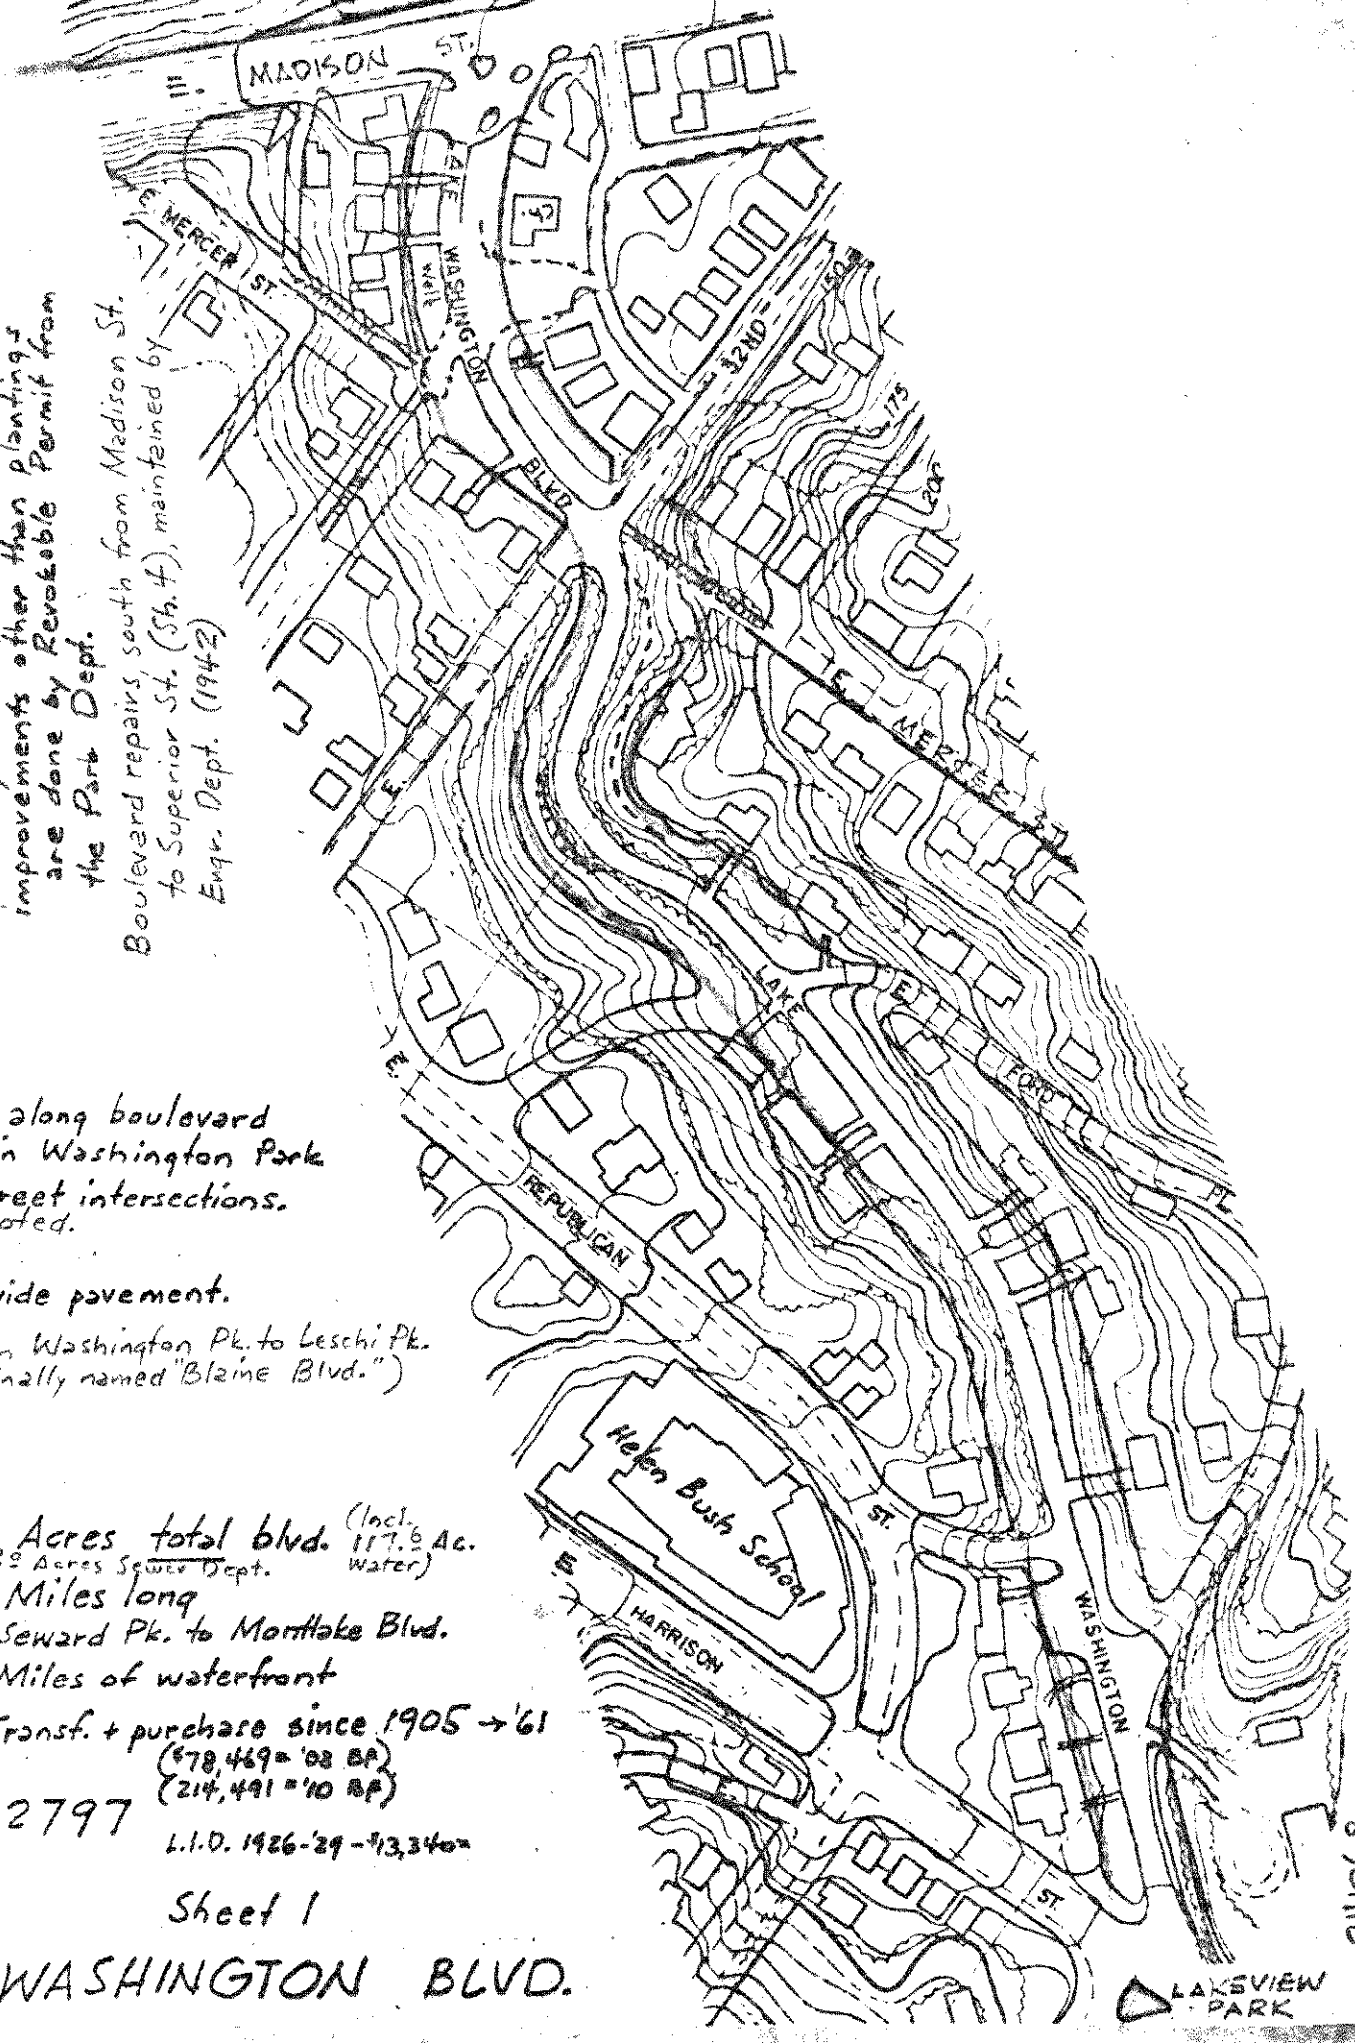 MADISON ST.
E. MERCER ST.
LAKE WASHINGTON BLVD
Walk
32ND
150
175
200
improvements other than plantings
are done by Revokable Permit from
the Park Dept.
Boulevard repairs, south from Madison St.
to Superior St. (Sh. 4), maintained by
Engr. Dept. (1942)
E.
E. MERCER ST.
LAKE
E. FORD PL.
E. REPUBLICAN ST.
along boulevard
Washington Park
reet intersections.
oted.
ide pavement.
Washington Pk. to Leschi Pk.
nally named "Blaine Blvd.")
Helen Bush School
E. HARRISON ST.
WASHINGTON
Acres total blvd. (Incl. 117.8 Ac. Water)
Acres Sewer Dept.
Miles long
Seward Pk. to Montlake Blvd.
Miles of waterfront
Transf. + purchase since 1905 → '61
($78,469= '08 BP)
(214,491= '10 BP)
2797
L.I.D. 1926-'29 - $13,340=
Sheet 1
WASHINGTON BLVD.
LAKEVIEW
PARK